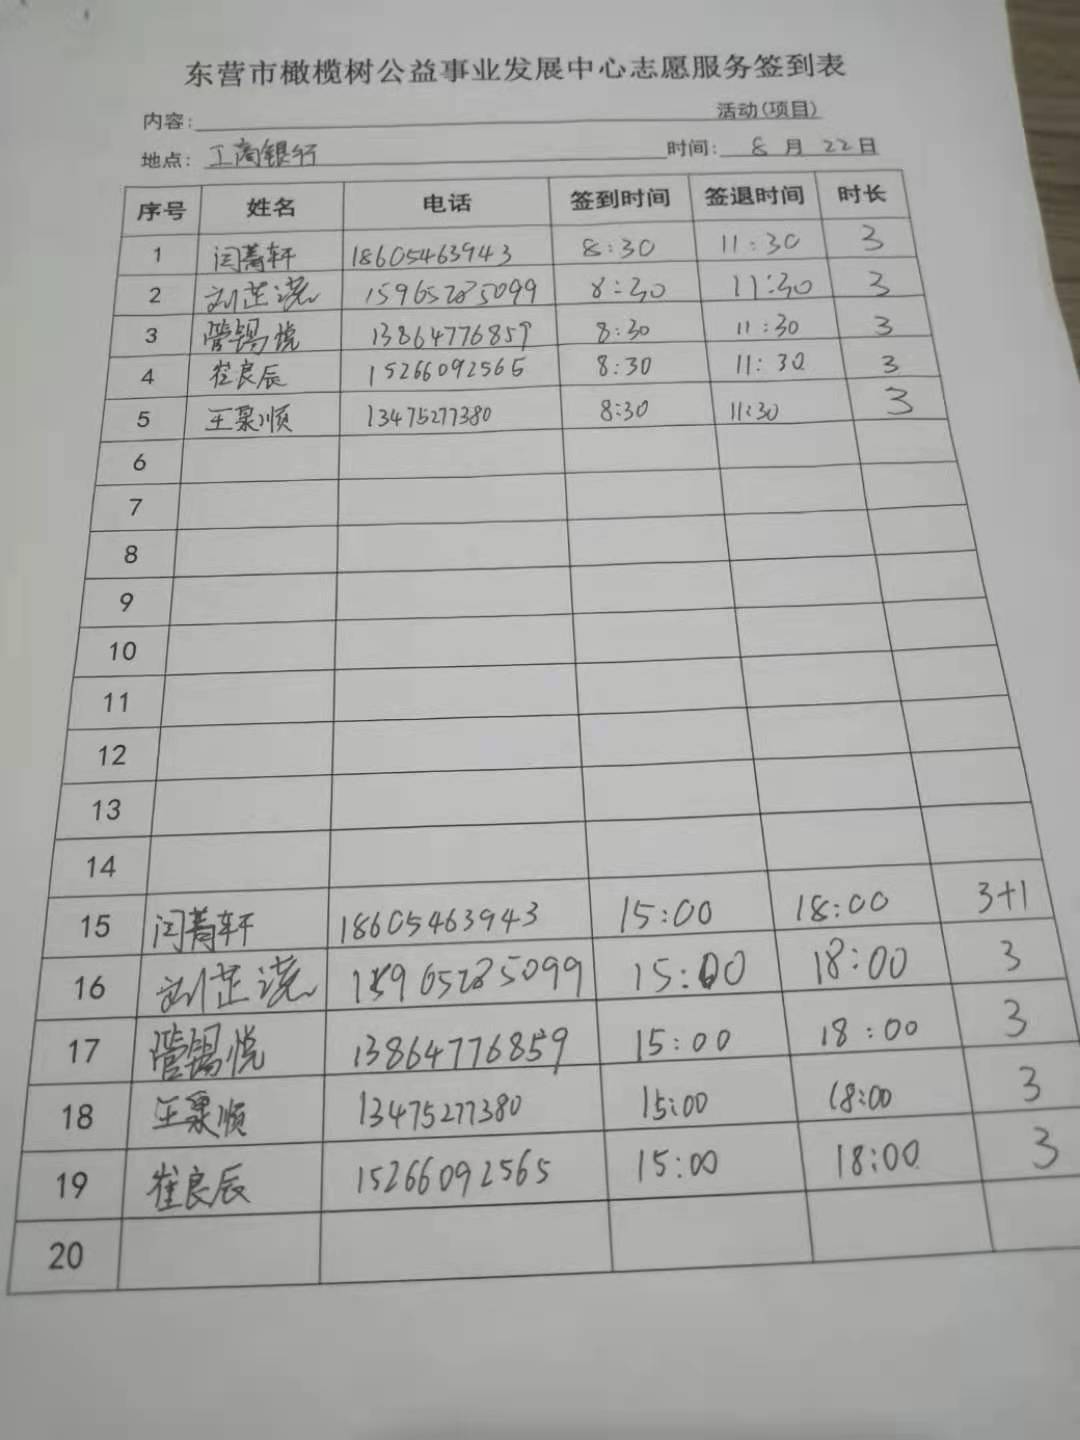 东营市橄榄树公益事业发展中心志愿服务签到表
内容: 活动(项目)
地点: 工商银行 时间: 8 月 22 日
序号 姓名 电话 签到时间 签退时间 时长
1 闫菁轩 18605463943 8:30 11:30 3
2 刘芷滢 15965285099 8:30 11:30 3
3 管锡悦 13864776859 8:30 11:30 3
4 崔良辰 15266092565 8:30 11:30 3
5 王泉顺 13475277380 8:30 11:30 3
6
7
8
9
10
11
12
13
14
15 闫菁轩 18605463943 15:00 18:00 3+1
16 刘芷滢 15965285099 15:00 18:00 3
17 管锡悦 13864776859 15:00 18:00 3
18 王泉顺 13475277380 15:00 18:00 3
19 崔良辰 15266092565 15:00 18:00 3
20